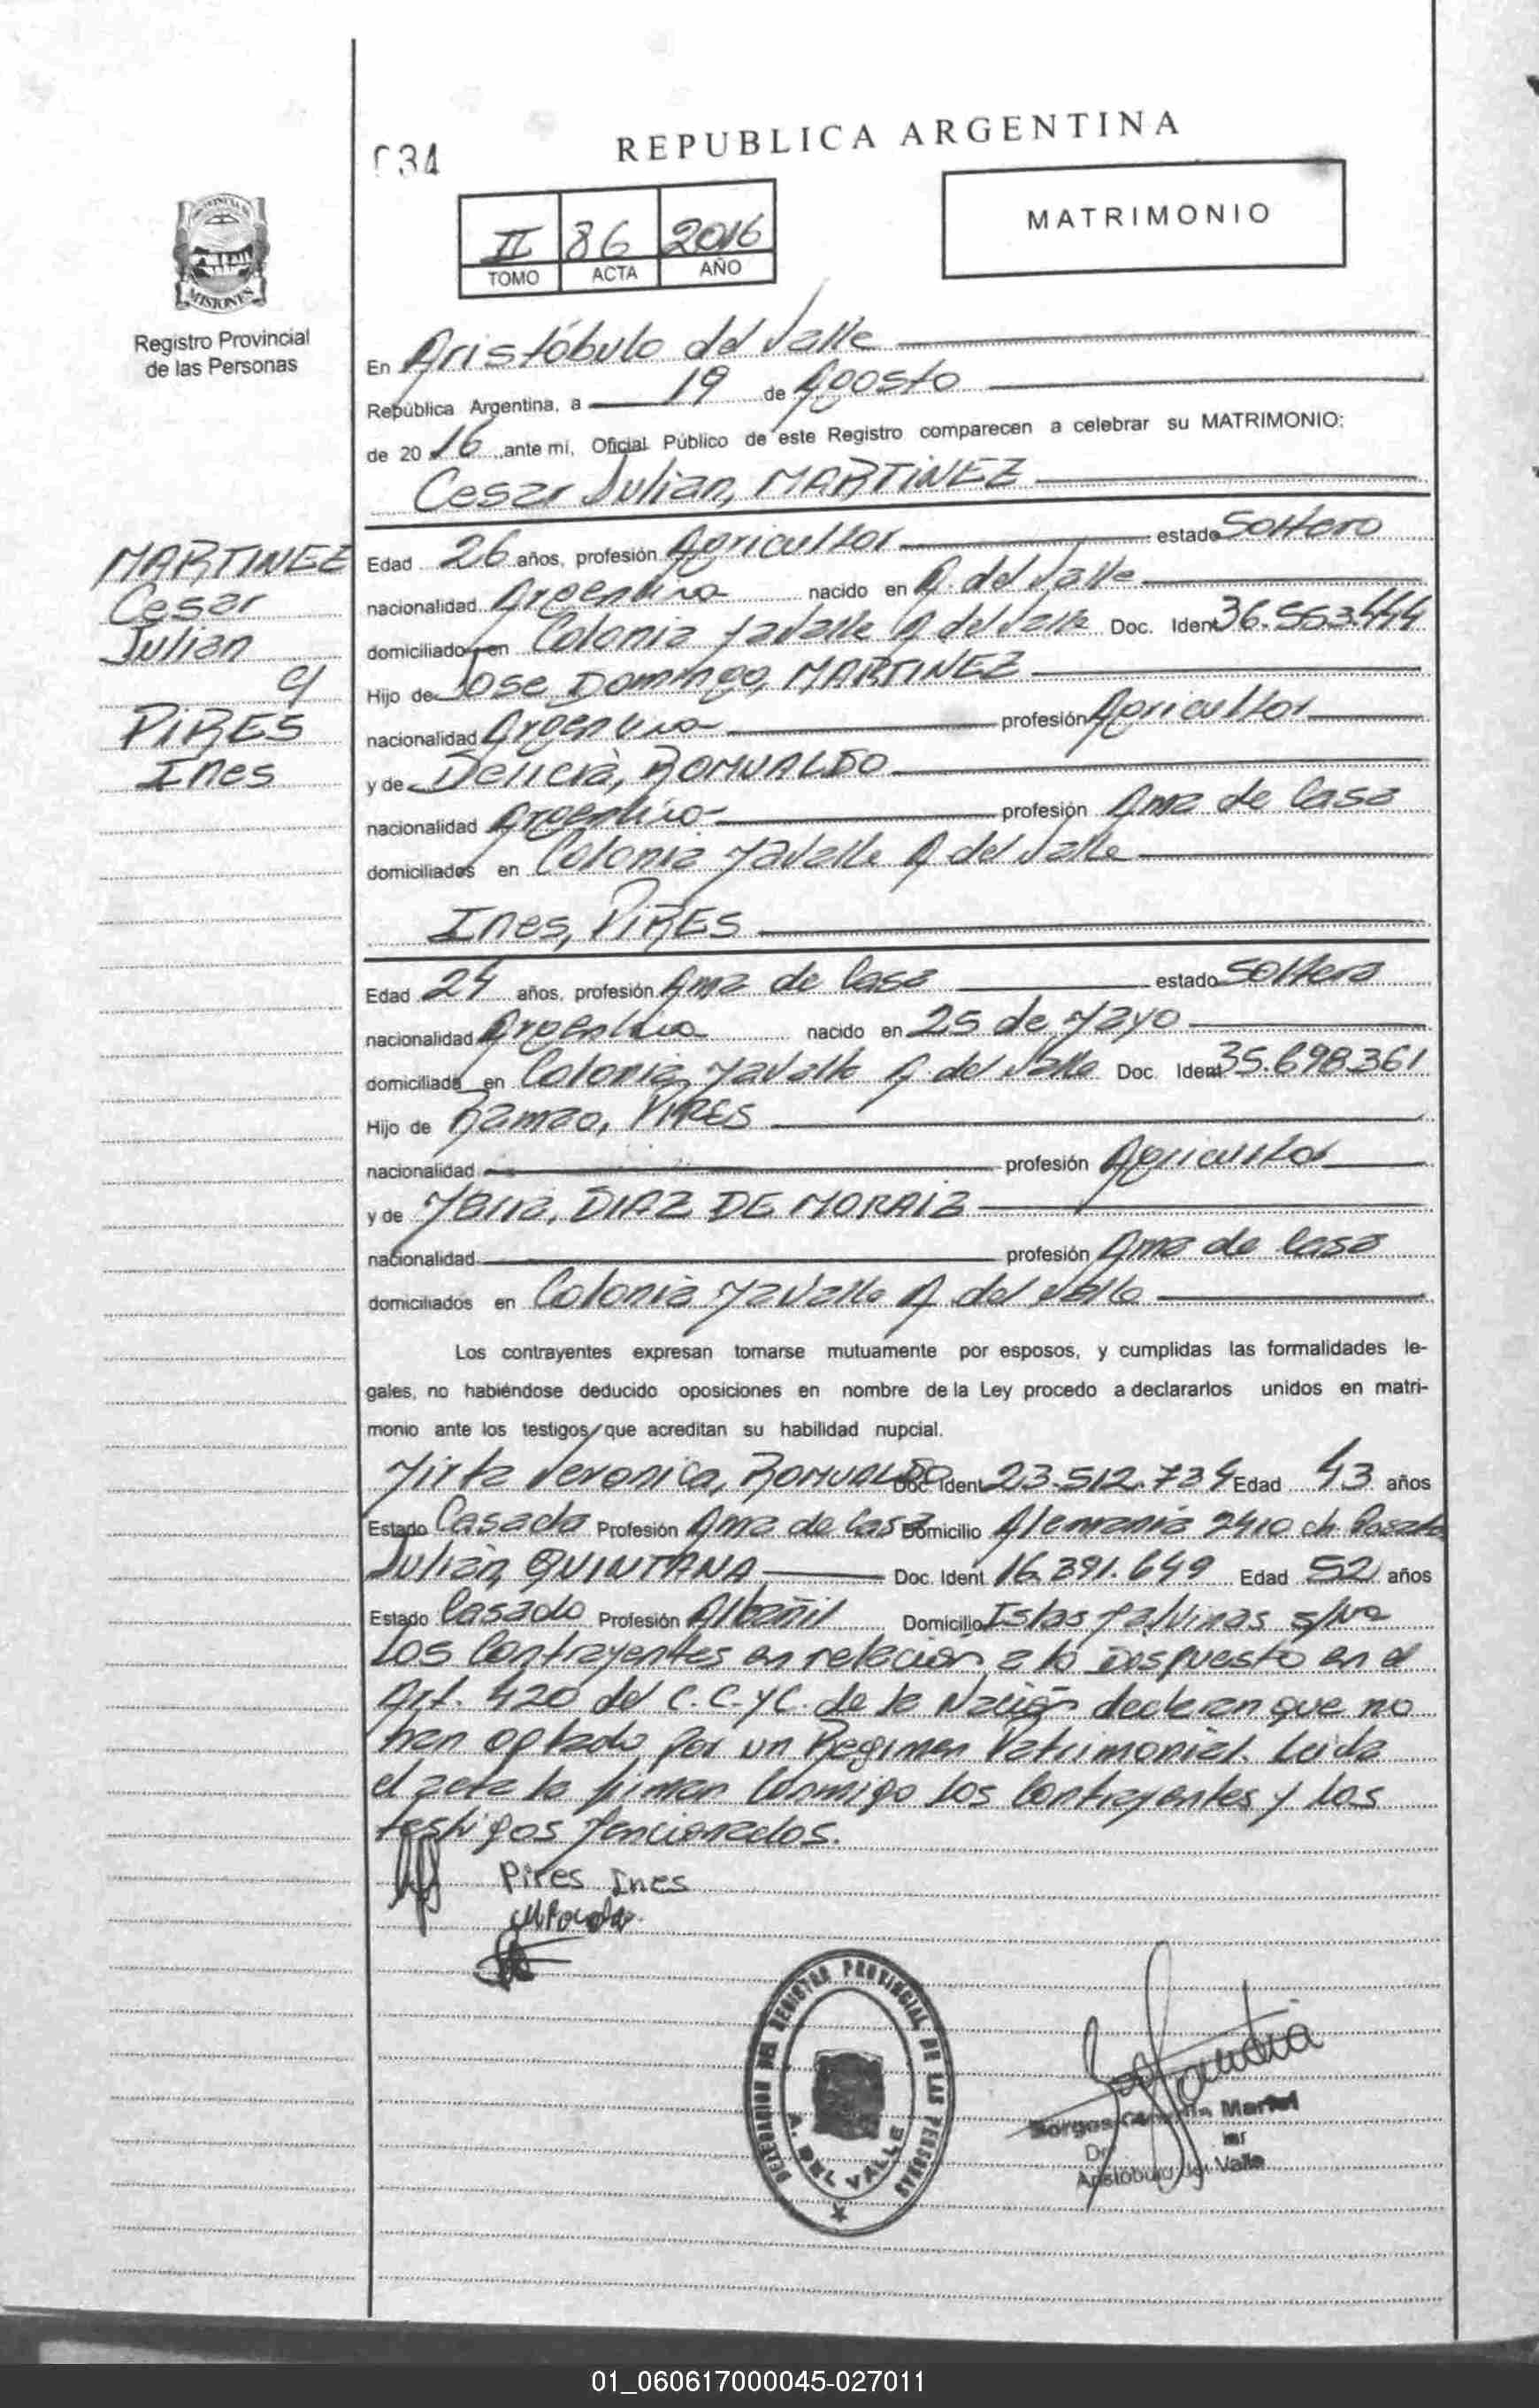 REPUBLICA ARGENTINA
034
MATRIMONIO
II 86 2016
TOMO ACTA AÑO
MISIONES
Registro Provincial
de las Personas
En Aristóbulo del Valle
República Argentina, a 19 de Agosto
de 2016 ante mi, Oficial Público de este Registro comparecen a celebrar su MATRIMONIO:
Cesar Julian, MARTINEZ
MARTINEZ
Cesar
Julian
c/
PIRES
Ines
Edad 26 años, profesión Agricultor estado Soltero
nacionalidad Argentina nacido en A. del Valle
domiciliado en Colonia A del Valle Doc. Ident 36.553.444
Hijo de Jose Domingo, MARTINEZ
nacionalidad Argentino profesión Agricultor
y de Delicia, ROMUALDO
nacionalidad Argentino profesión Ama de Casa
domiciliados en Colonia A del Valle
Ines, PIRES
Edad 24 años, profesión Ama de Casa estado Soltera
nacionalidad Argentina nacido en 25 de Mayo
domiciliada en Colonia A. del Valle Doc. Ident 35.698.361
Hijo de Ramao, PIRES
nacionalidad profesión Agricultor
y de Maria, DIAZ DE MORAIZ
nacionalidad profesión Ama de Casa
domiciliados en Colonia A del Valle
Los contrayentes expresan tomarse mutuamente por esposos, y cumplidas las formalidades le-
gales, no habiéndose deducido oposiciones en nombre de la Ley procedo a declararlos unidos en matri-
monio ante los testigos que acreditan su habilidad nupcial.
Mirta Veronica, ROMUALDO Doc. Ident 23.512.734 Edad 43 años
Estado Casada Profesión Ama de Casa Domicilio Alemania 2410 ch.
Julian, QUINTANA Doc. Ident 16.391.649 Edad 52 años
Estado Casado Profesión Albañil Domicilio Islas Malvinas s/n
Los Contrayentes en relación a lo Dispuesto en el
Art. 420 del C.C.yC. de la Nación declaran que no
han optado por un Regimen Patrimonial. Leida
el acta la firman Conmigo los Contrayentes y los
testigos Mencionados.
Pires Ines
DELEGACION DEL REGISTRO PROVINCIAL DE LAS PERSONAS
A. DEL VALLE
Aristóbulo del Valle
01_060617000045-027011